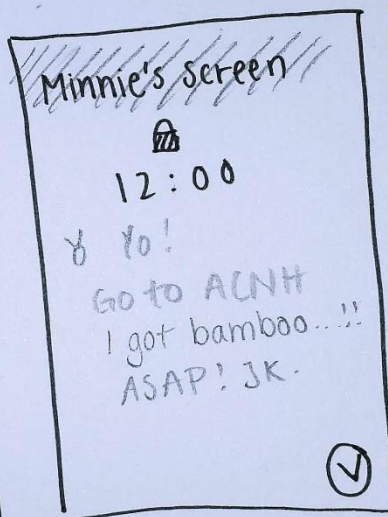 Minnie's screen
12:00
Yo!
Go to ACNH
I got bamboo...!!
ASAP! JK.